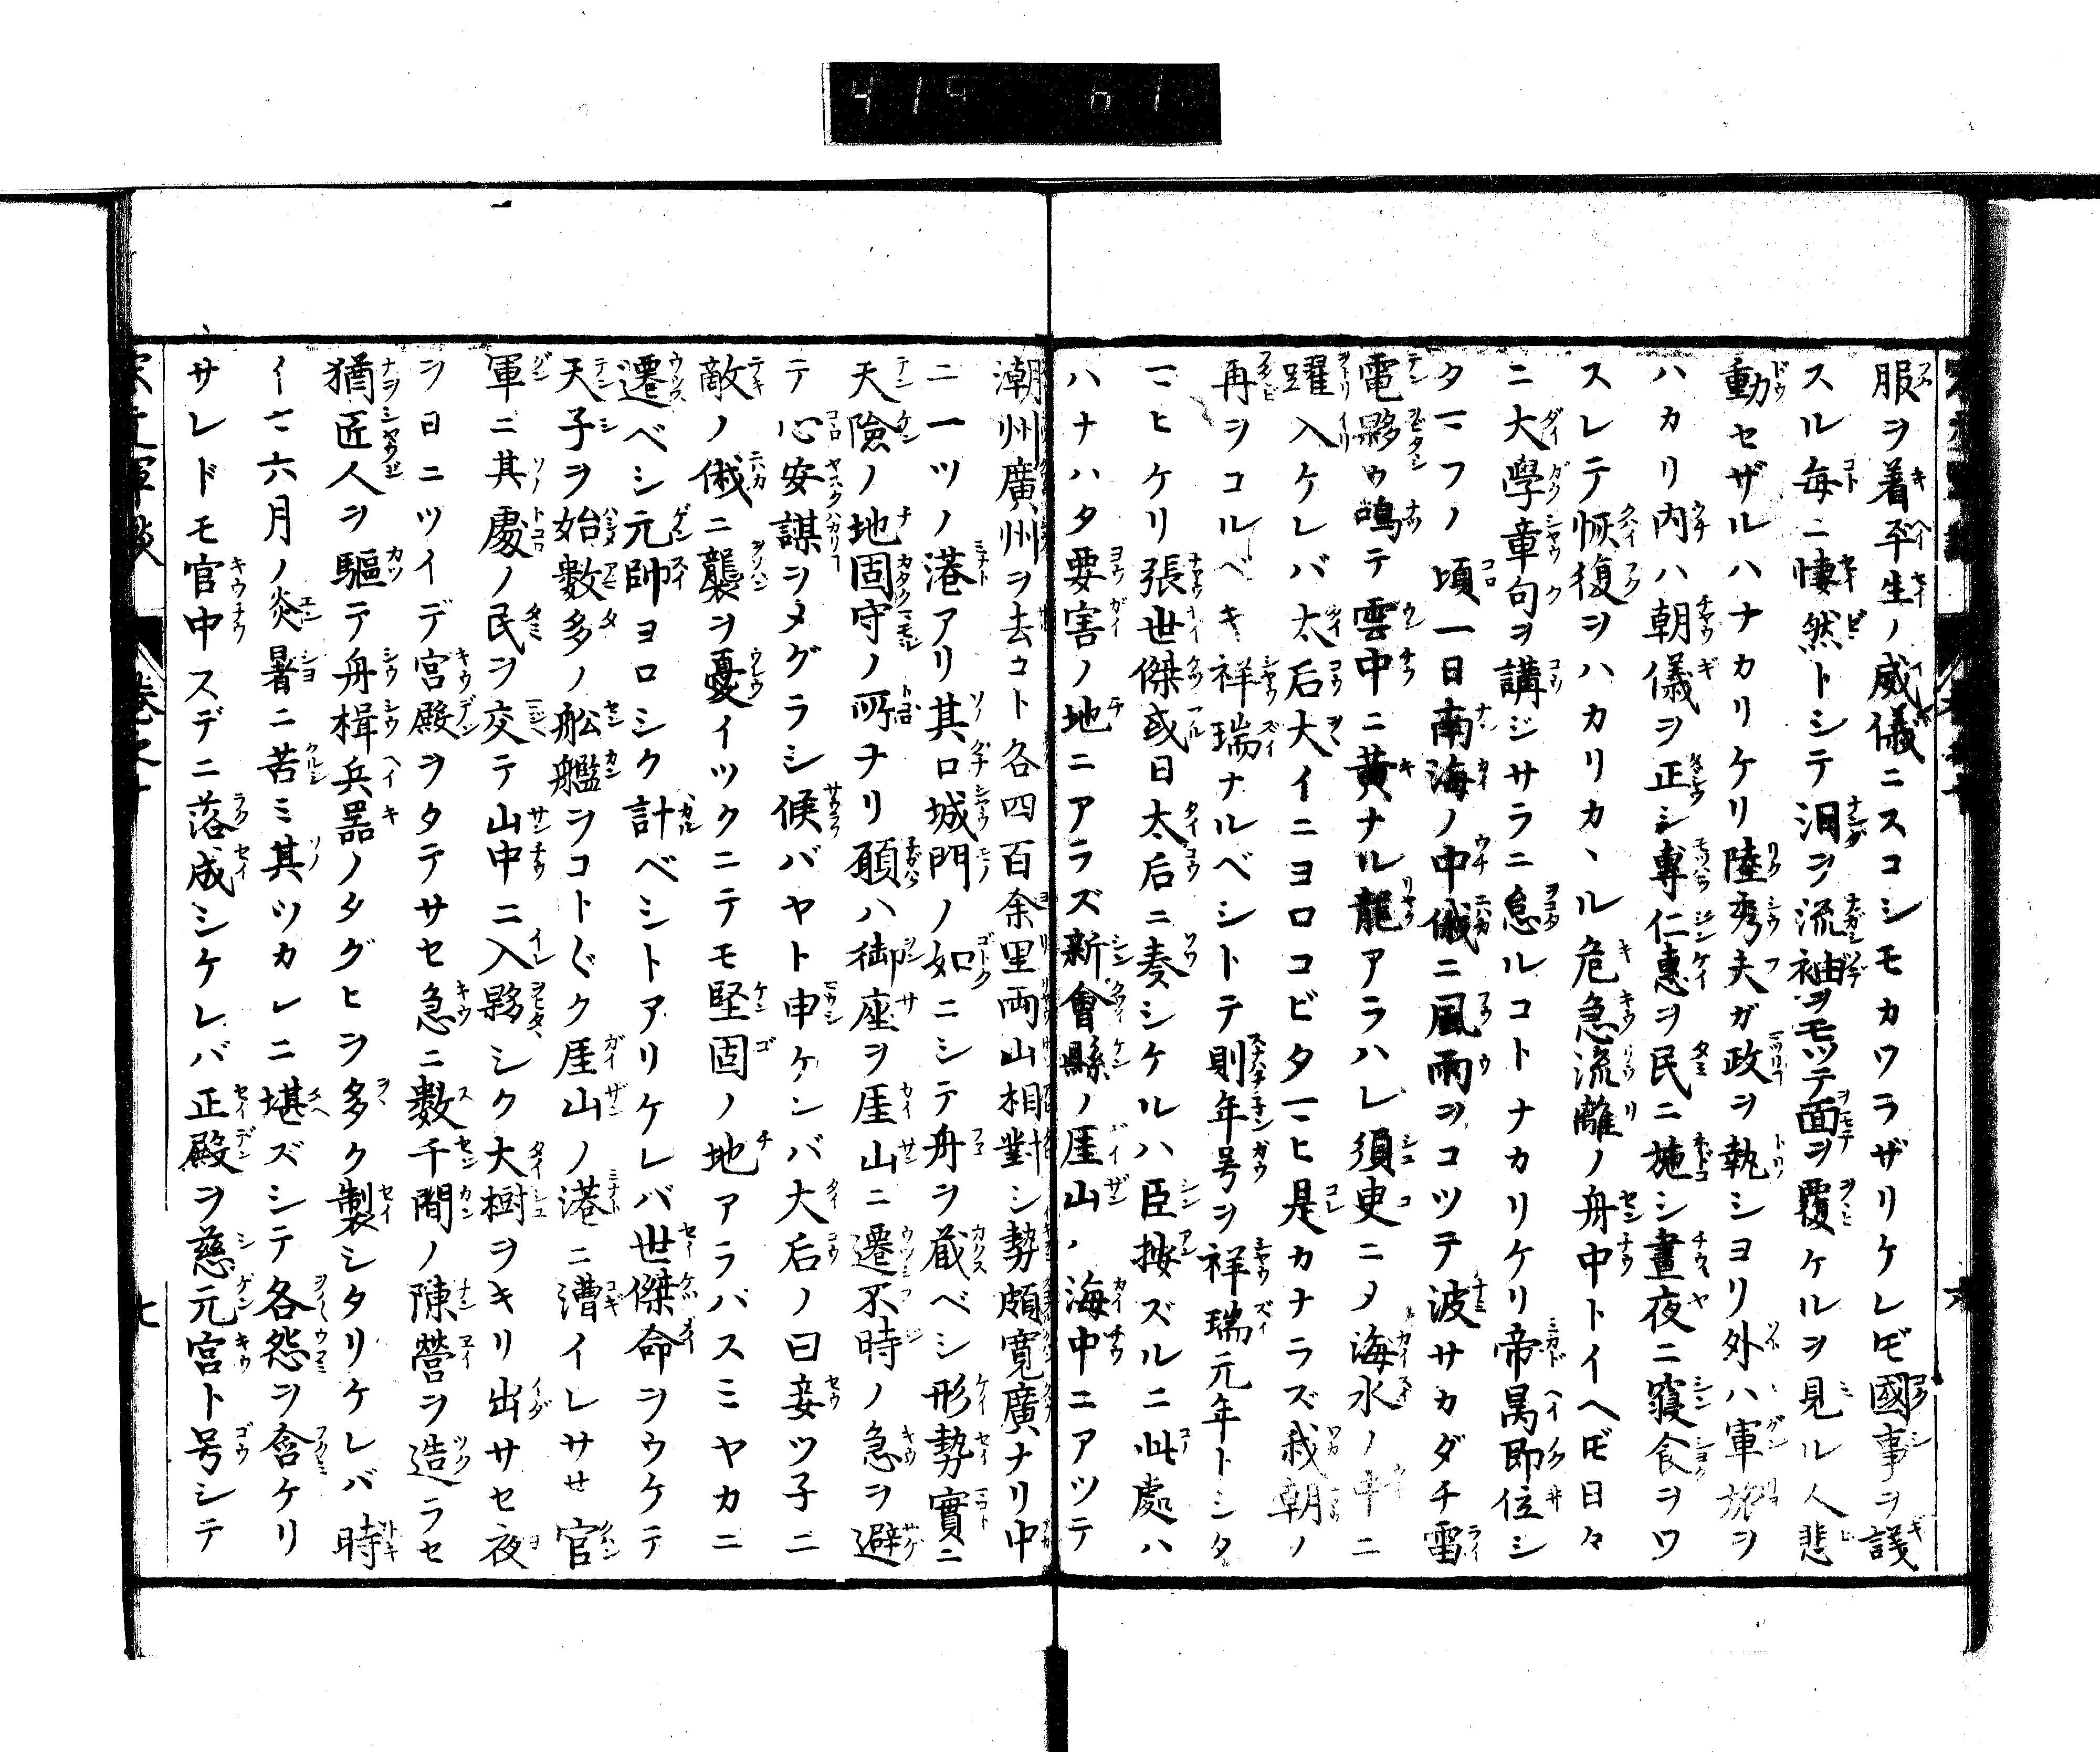 服ヲ着平生ノ威儀ニスコシモカワラザリケレ𪜈國事ヲ議
スル毎ニ悽然トシテ泪ヲ流袖ヲモツテ面ヲ覆ケルヲ見ル人悲
動セザルハナカリケリ陸秀夫ガ政ヲ執シヨリ外ハ軍旅ヲ
ハカリ内ハ朝儀ヲ正シ專仁惠ヲ民ニ施シ晝夜ニ寢食ヲワ
スレテ恢復ヲハカリカヽル危急流離ノ舟中トイヘ𪜈日々
ニ大學章句ヲ講ジサラニ怠ルコトナカリケリ帝昺即位シ
タマフノ頃一日南海ノ中俄ニ風雨ヲコツテ波サカダチ雷
電夥ウ鳴テ雲中ニ黄ナル龍アラハレ須臾ニ〆海水ノ中ニ
躍入ケレバ太后大イニヨロコビタマヒ是カナラズ我朝ノ
再ヲコルベキ祥瑞ナルベシトテ則年号ヲ祥瑞元年トシタ
マヒケリ張世傑或日太后ニ奏シケルハ臣按ズルニ此處ハ
ハナハタ要害ノ地ニアラズ新會縣ノ厓山ハ海中ニアツテ
潮州廣州ヲ去コト各四百余里両山相對シ勢頗寛廣ナリ中
ニ一ツノ港アリ其口城門ノ如ニシテ舟ヲ蔵ベシ形勢實ニ
天險ノ地固守ノ所ナリ願ハ御座ヲ厓山ニ遷不時ノ急ヲ避
テ心安謀ヲメグラシ候バヤト申ケレバ大后ノ曰妾ツ子ニ
敵ノ俄ニ襲ヲ憂イツクニテモ堅固ノ地アラバスミヤカニ
遷ベシ元帥ヨロシク計ベシトアリケレバ世傑命ヲウケテ
天子ヲ始數多ノ舩艦ヲコト〲ク厓山ノ港ニ漕イレサせ官
軍ニ其處ノ民ヲ交テ山中ニ入夥シク大樹ヲキリ出サセ夜
ヲ日ニツイデ宮殿ヲタテサセ急ニ數千間ノ陳營ヲ造ラセ
猶匠人ヲ驅テ舟楫兵器ノタグヒヲ多ク製シタリケレバ時
イマ六月ノ炎暑ニ苦ミ其ツカレニ堪ズシテ各怨ヲ含ケリ
サレドモ官中スデニ落成シケレバ正殿ヲ慈元宮ト号シテ
七